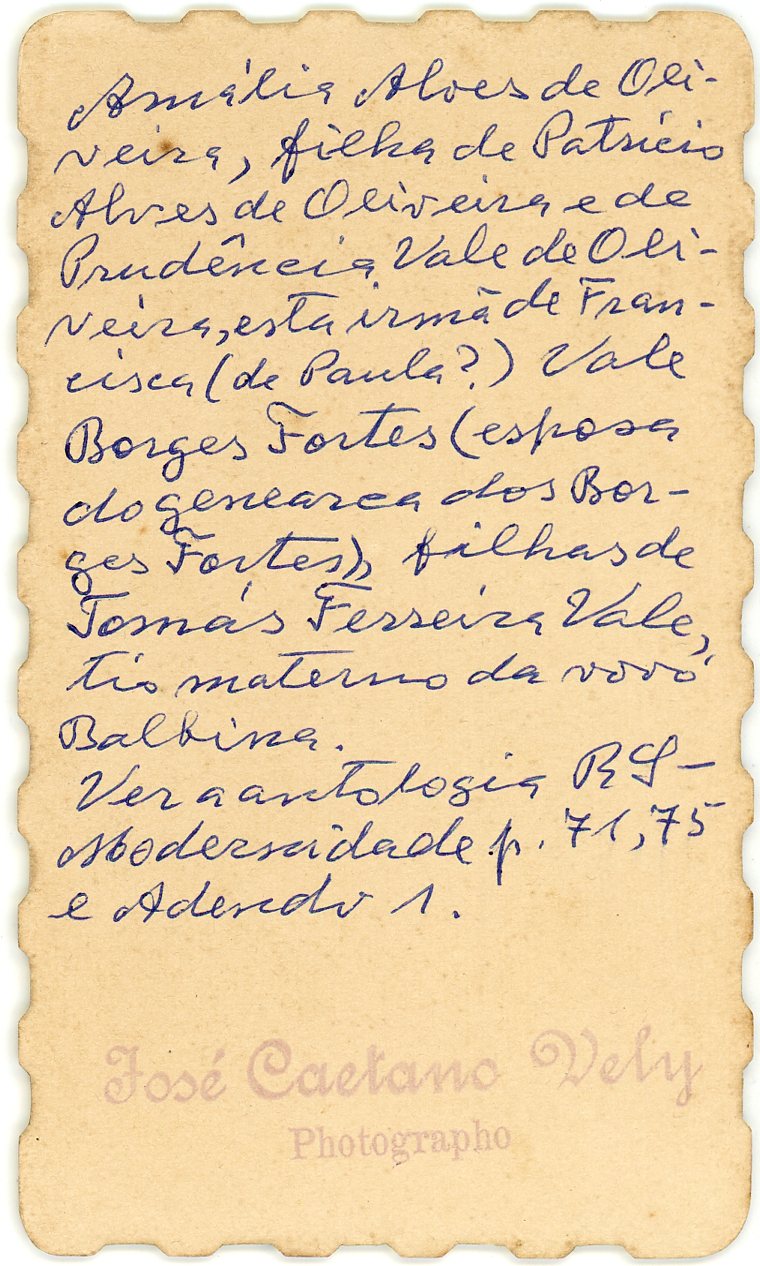 Amália Alves de Oli-
veira, filha de Patrício
Alves de Oliveira e de
Prudência Vale de Oli-
veira, esta irmã de Fran-
cisca (de Paula?) Vale
Borges Fortes (esposa
do genearca dos Bor-
ges Fortes), filhas de
Tomás Ferreira Vale,
tio materno da vovó
Balbina.
Ver a antologia RS-
Modernidade p. 71, 75
e Adendo 1.
José Caetano Vely
Photographo